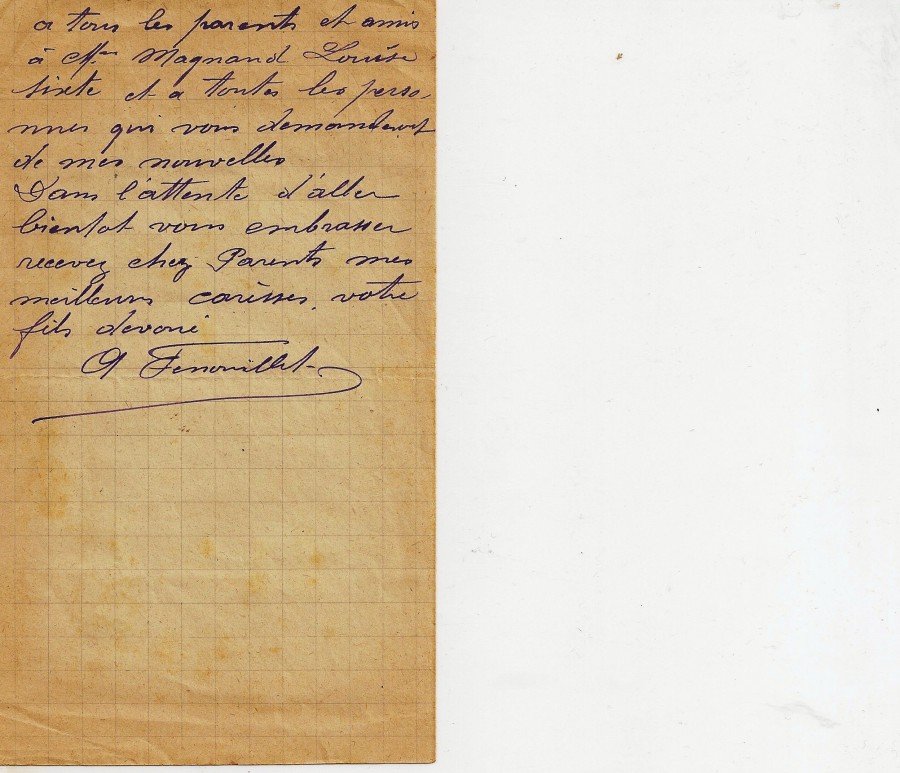 a tous les parents et amis
à Mme Magnand Louise
sixte et a toutes les perso-
nnes qui vous demanderont
de mes nouvelles
Dans l'attente d'aller
bientot vous embrasser
recevez chez Parents mes
meilleurs caresses, votre
fils devoué
A Fenouillet